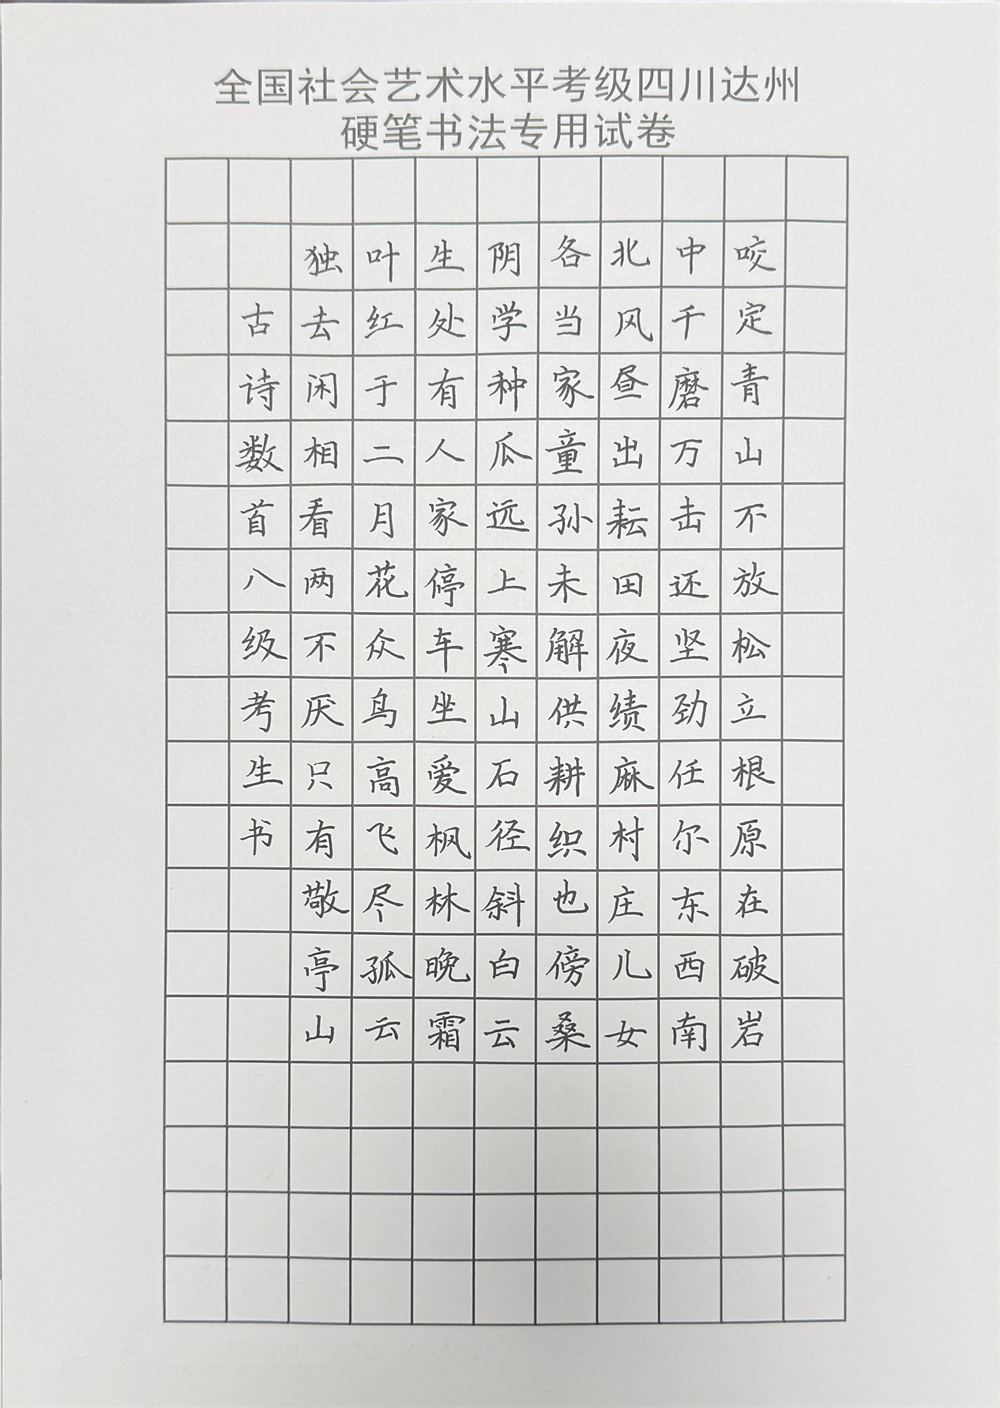 全国社会艺术水平考级四川达州
硬笔书法专用试卷
咬定青山不放松立根原在破岩
中千磨万击还坚劲任尔东西南
北风昼出耘田夜绩麻村庄儿女
各当家童孙未解供耕织也傍桑
阴学种瓜远上寒山石径斜白云
生处有人家停车坐爱枫林晚霜
叶红于二月花众鸟高飞尽孤云
独去闲相看两不厌只有敬亭山
古诗数首八级考生书